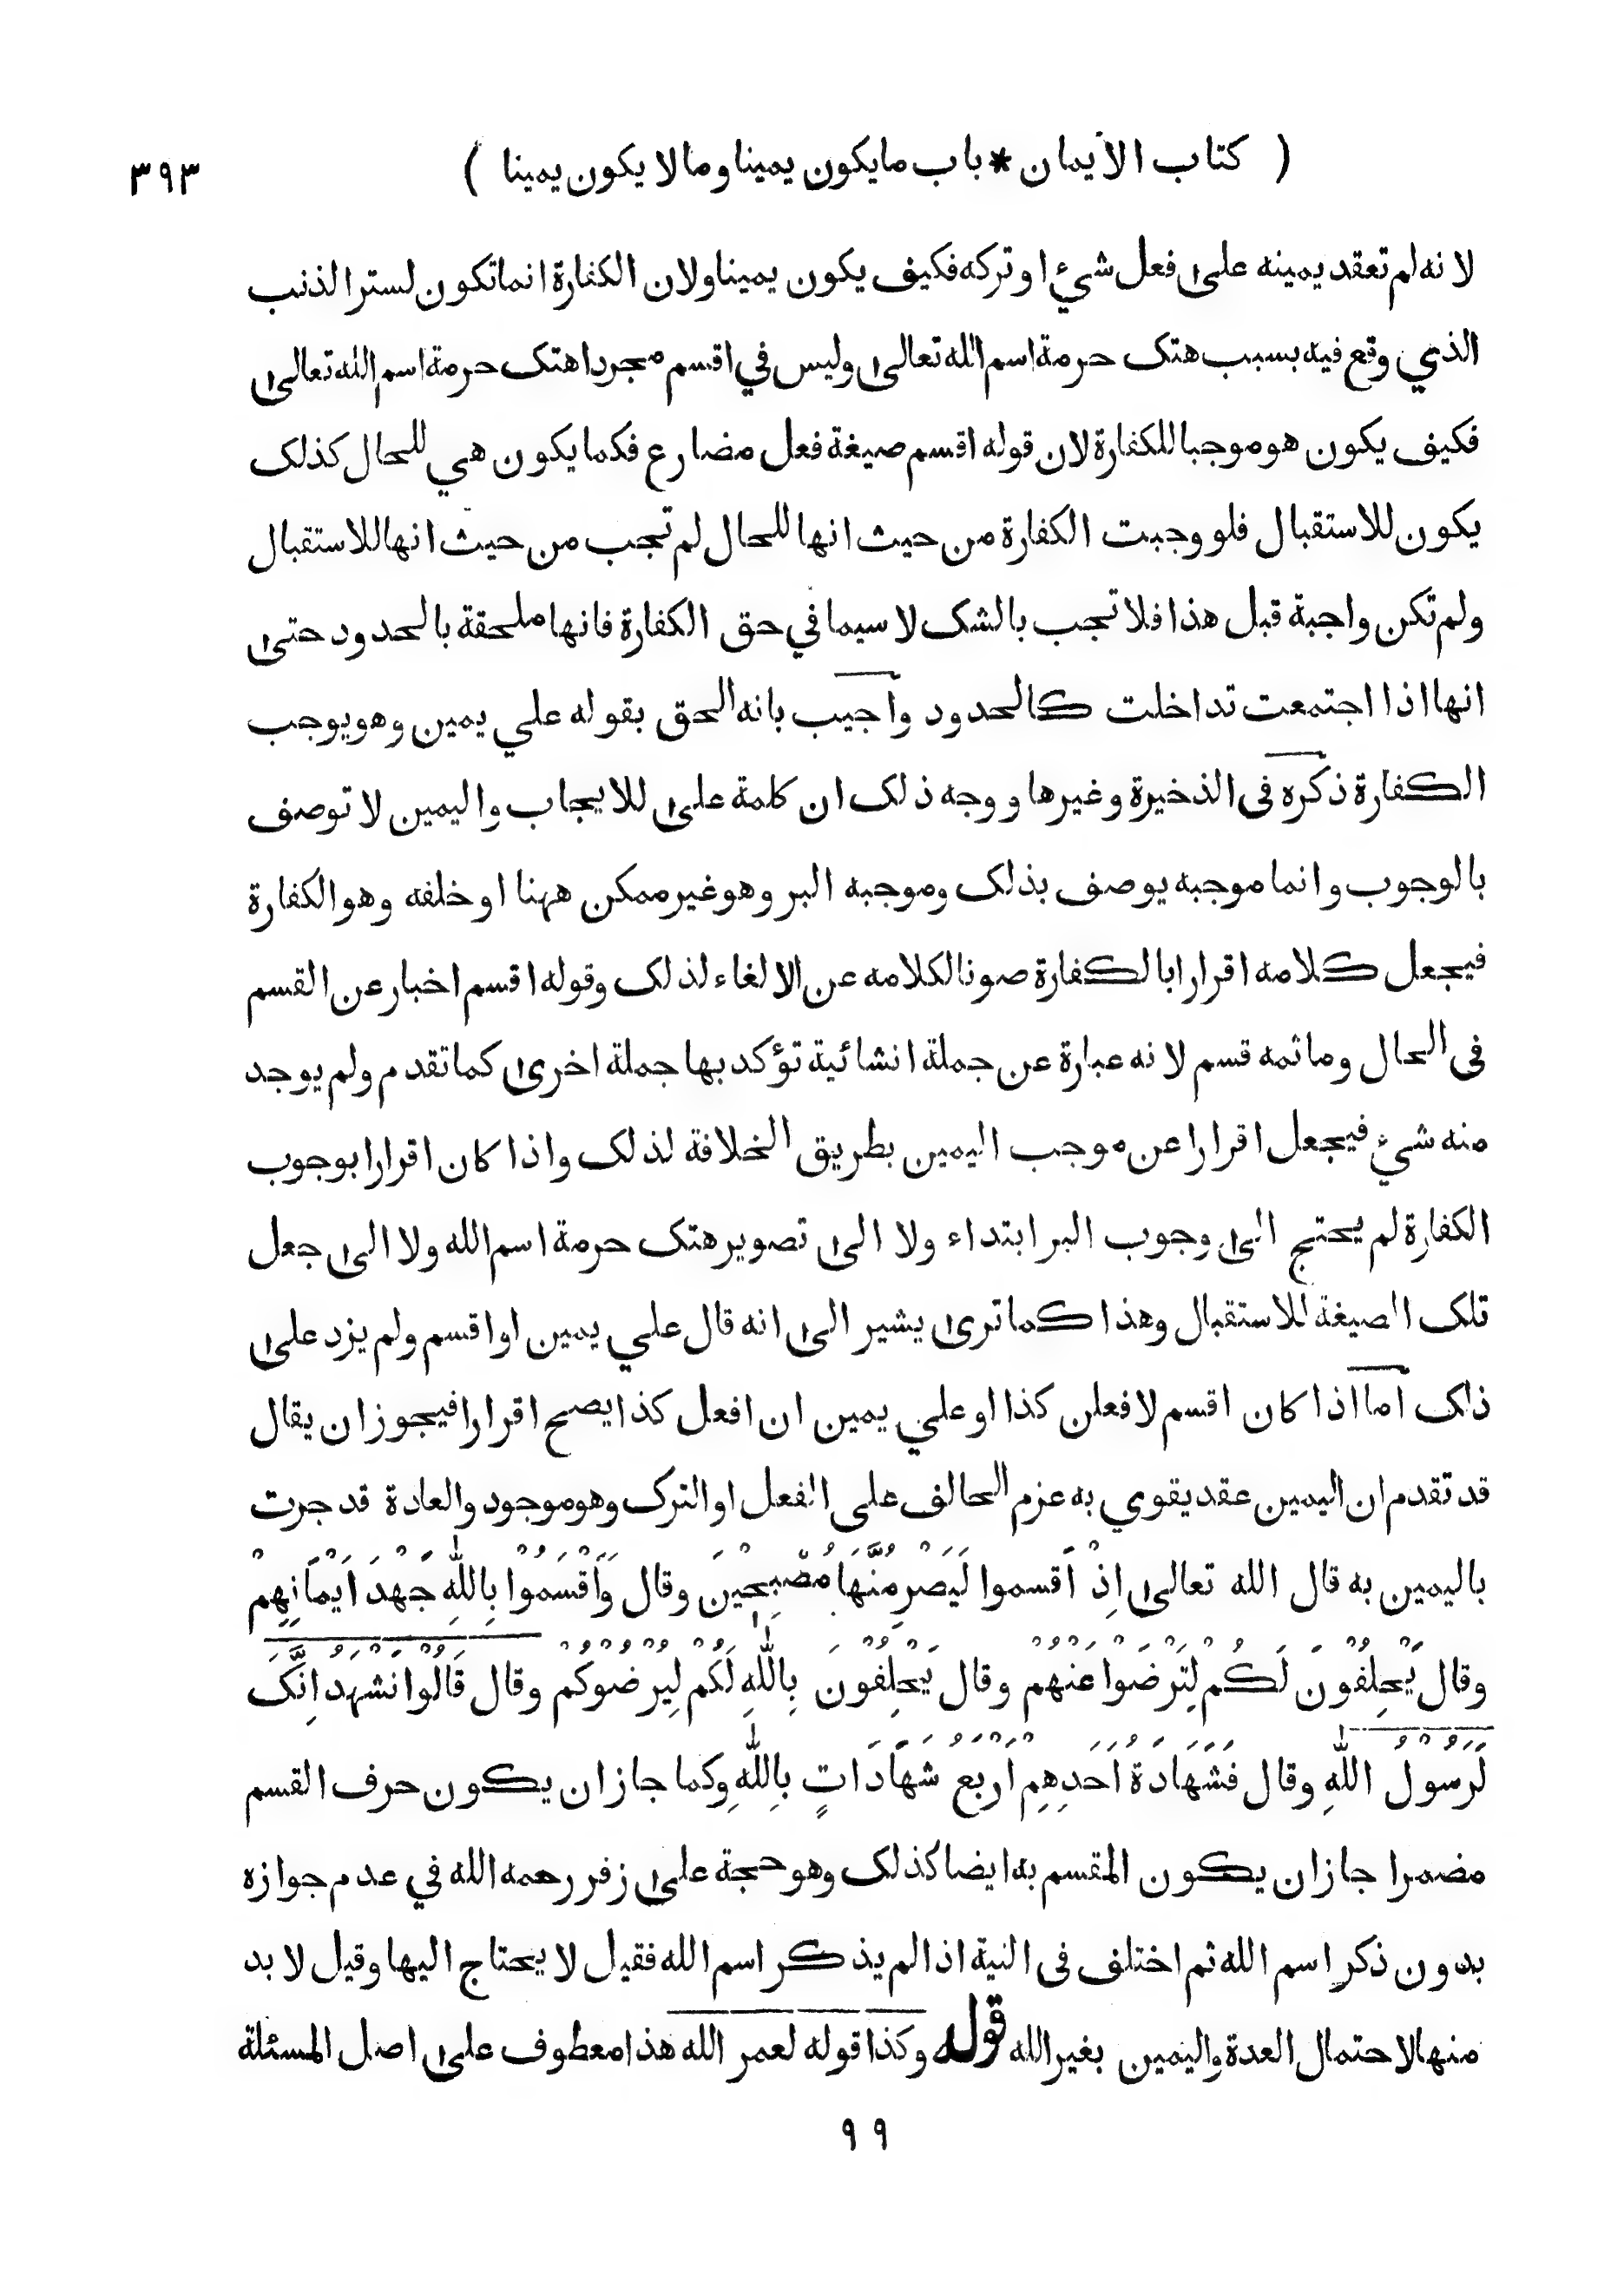 ( كتاب الأيمان * باب ما يكون يمينا وما لا يكون يمينا ) ٣٩٣
لانه لم تعقد يمينه على فعل شيء او تركه فكيف يكون يمينا ولان الكفارة انما تكون لستر الذنب
الذي وقع فيه بسبب هتك حرمة اسم الله تعالى وليس في اقسم مجردا هتك حرمة اسم الله تعالى
فكيف يكون هو موجبا للكفارة لان قوله اقسم صيغة فعل مضارع فكما يكون هي للحال كذلك
يكون للاستقبال فلو وجبت الكفارة من حيث انها للحال لم تجب من حيث انها للاستقبال
ولم تكن واجبة قبل هذا فلا تجب بالشك لا سيما في حق الكفارة فانها ملحقة بالحدود حتى
انها اذا اجتمعت تداخلت كالحدود واجيب بانه الحق بقوله علي يمين وهو يوجب
الكفارة ذكره فى الذخيرة وغيرها ووجه ذلك ان كلمة على للايجاب واليمين لا توصف
بالوجوب وانما موجبه يوصف بذلك وموجبه البر وهو غير ممكن ههنا او خلفه وهو الكفارة
فيجعل كلامه اقرارا بالكفارة صونا لكلامه عن الالغاء لذلك وقوله اقسم اخبار عن القسم
فى الحال وما ثمه قسم لانه عبارة عن جملة انشائية تؤكد بها جملة اخرى كما تقدم ولم يوجد
منه شيء فيجعل اقرارا عن موجب اليمين بطريق الخلافة لذلك واذا كان اقرارا بوجوب
الكفارة لم يحتج الى وجوب البر ابتداء ولا الى تصوير هتك حرمة اسم الله ولا الى جعل
تلك الصيغة للاستقبال وهذا كما ترى يشير الى انه قال علي يمين او اقسم ولم يزد على
ذلك اما اذا كان اقسم لافعلن كذا او علي يمين ان افعل كذا يصح اقرارا فيجوز ان يقال
قد تقدم ان اليمين عقد يقوي به عزم الحالف على الفعل او الترك وهو موجود والعادة قد جرت
باليمين به قال الله تعالى اِذْ اَقسموا لَيَصْرِمُنَّهَا مُصْبِحِيْنَ وقال وَاَقْسَمُوْا بِاللهِ جَهْدَ اَيْمَانِهِمْ
وقال يَحْلِفُوْنَ لَكُمْ لِتَرْضَوْا عَنْهُمْ وقال يَحْلِفُوْنَ بِاللهِ لَكُمْ لِيُرْضُوْكُمْ وقال قَالُوْا نَشْهَدُ اِنَّكَ
لَرَسُوْلُ اللهِ وقال فَشَهَادَةُ اَحَدِهِمْ اَرْبَعُ شَهَادَاتٍ بِاللهِ وكما جاز ان يكون حرف القسم
مضمرا جاز ان يكون المقسم به ايضا كذلك وهو حجة على زفر رحمه الله في عدم جوازه
بدون ذكر اسم الله ثم اختلف فى النية اذا لم يذكر اسم الله فقيل لا يحتاج اليها وقيل لا بد
منها لاحتمال العدة واليمين بغير الله قوله وكذا قوله لعمر الله هذا معطوف على اصل المسئلة
٩٩